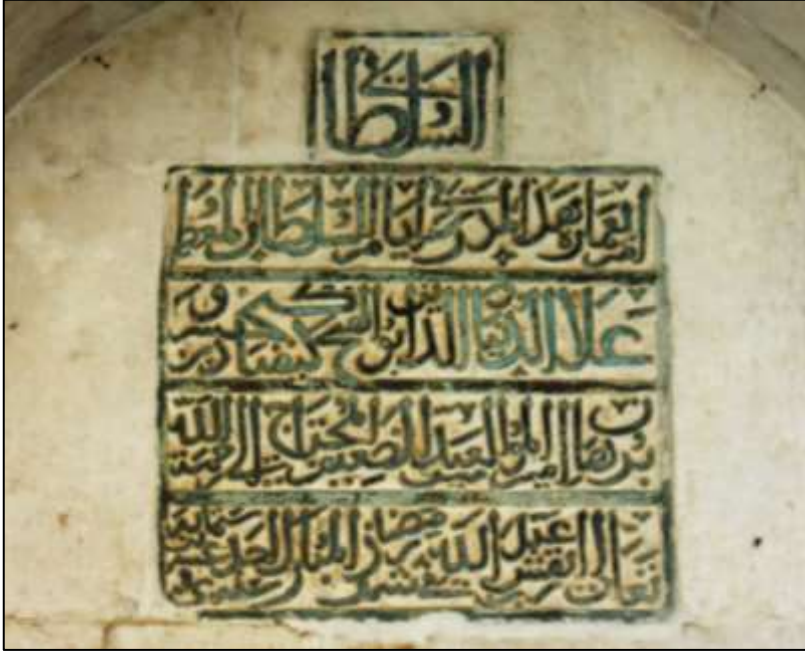 السلطاني
امر بعمارة هذا المدرسة في ايام السلطان المعظم
علا الدنيا والدين ابو الفتح كيقباد بن كيخسرو
برهان امير المؤمنين العبد الضعيف المحتاج الى رحمة الله
تعالى ارتقش بن عبد الله في شهر رمضان المبارك احدى عشرين ستماية